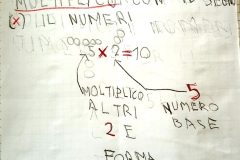 MOLTIPLICO
(X) I NUMERI
5 x 2 = 10
MOLTIPLICO
ALTRI
2 E
FORMA
5
NUMERO
BASE